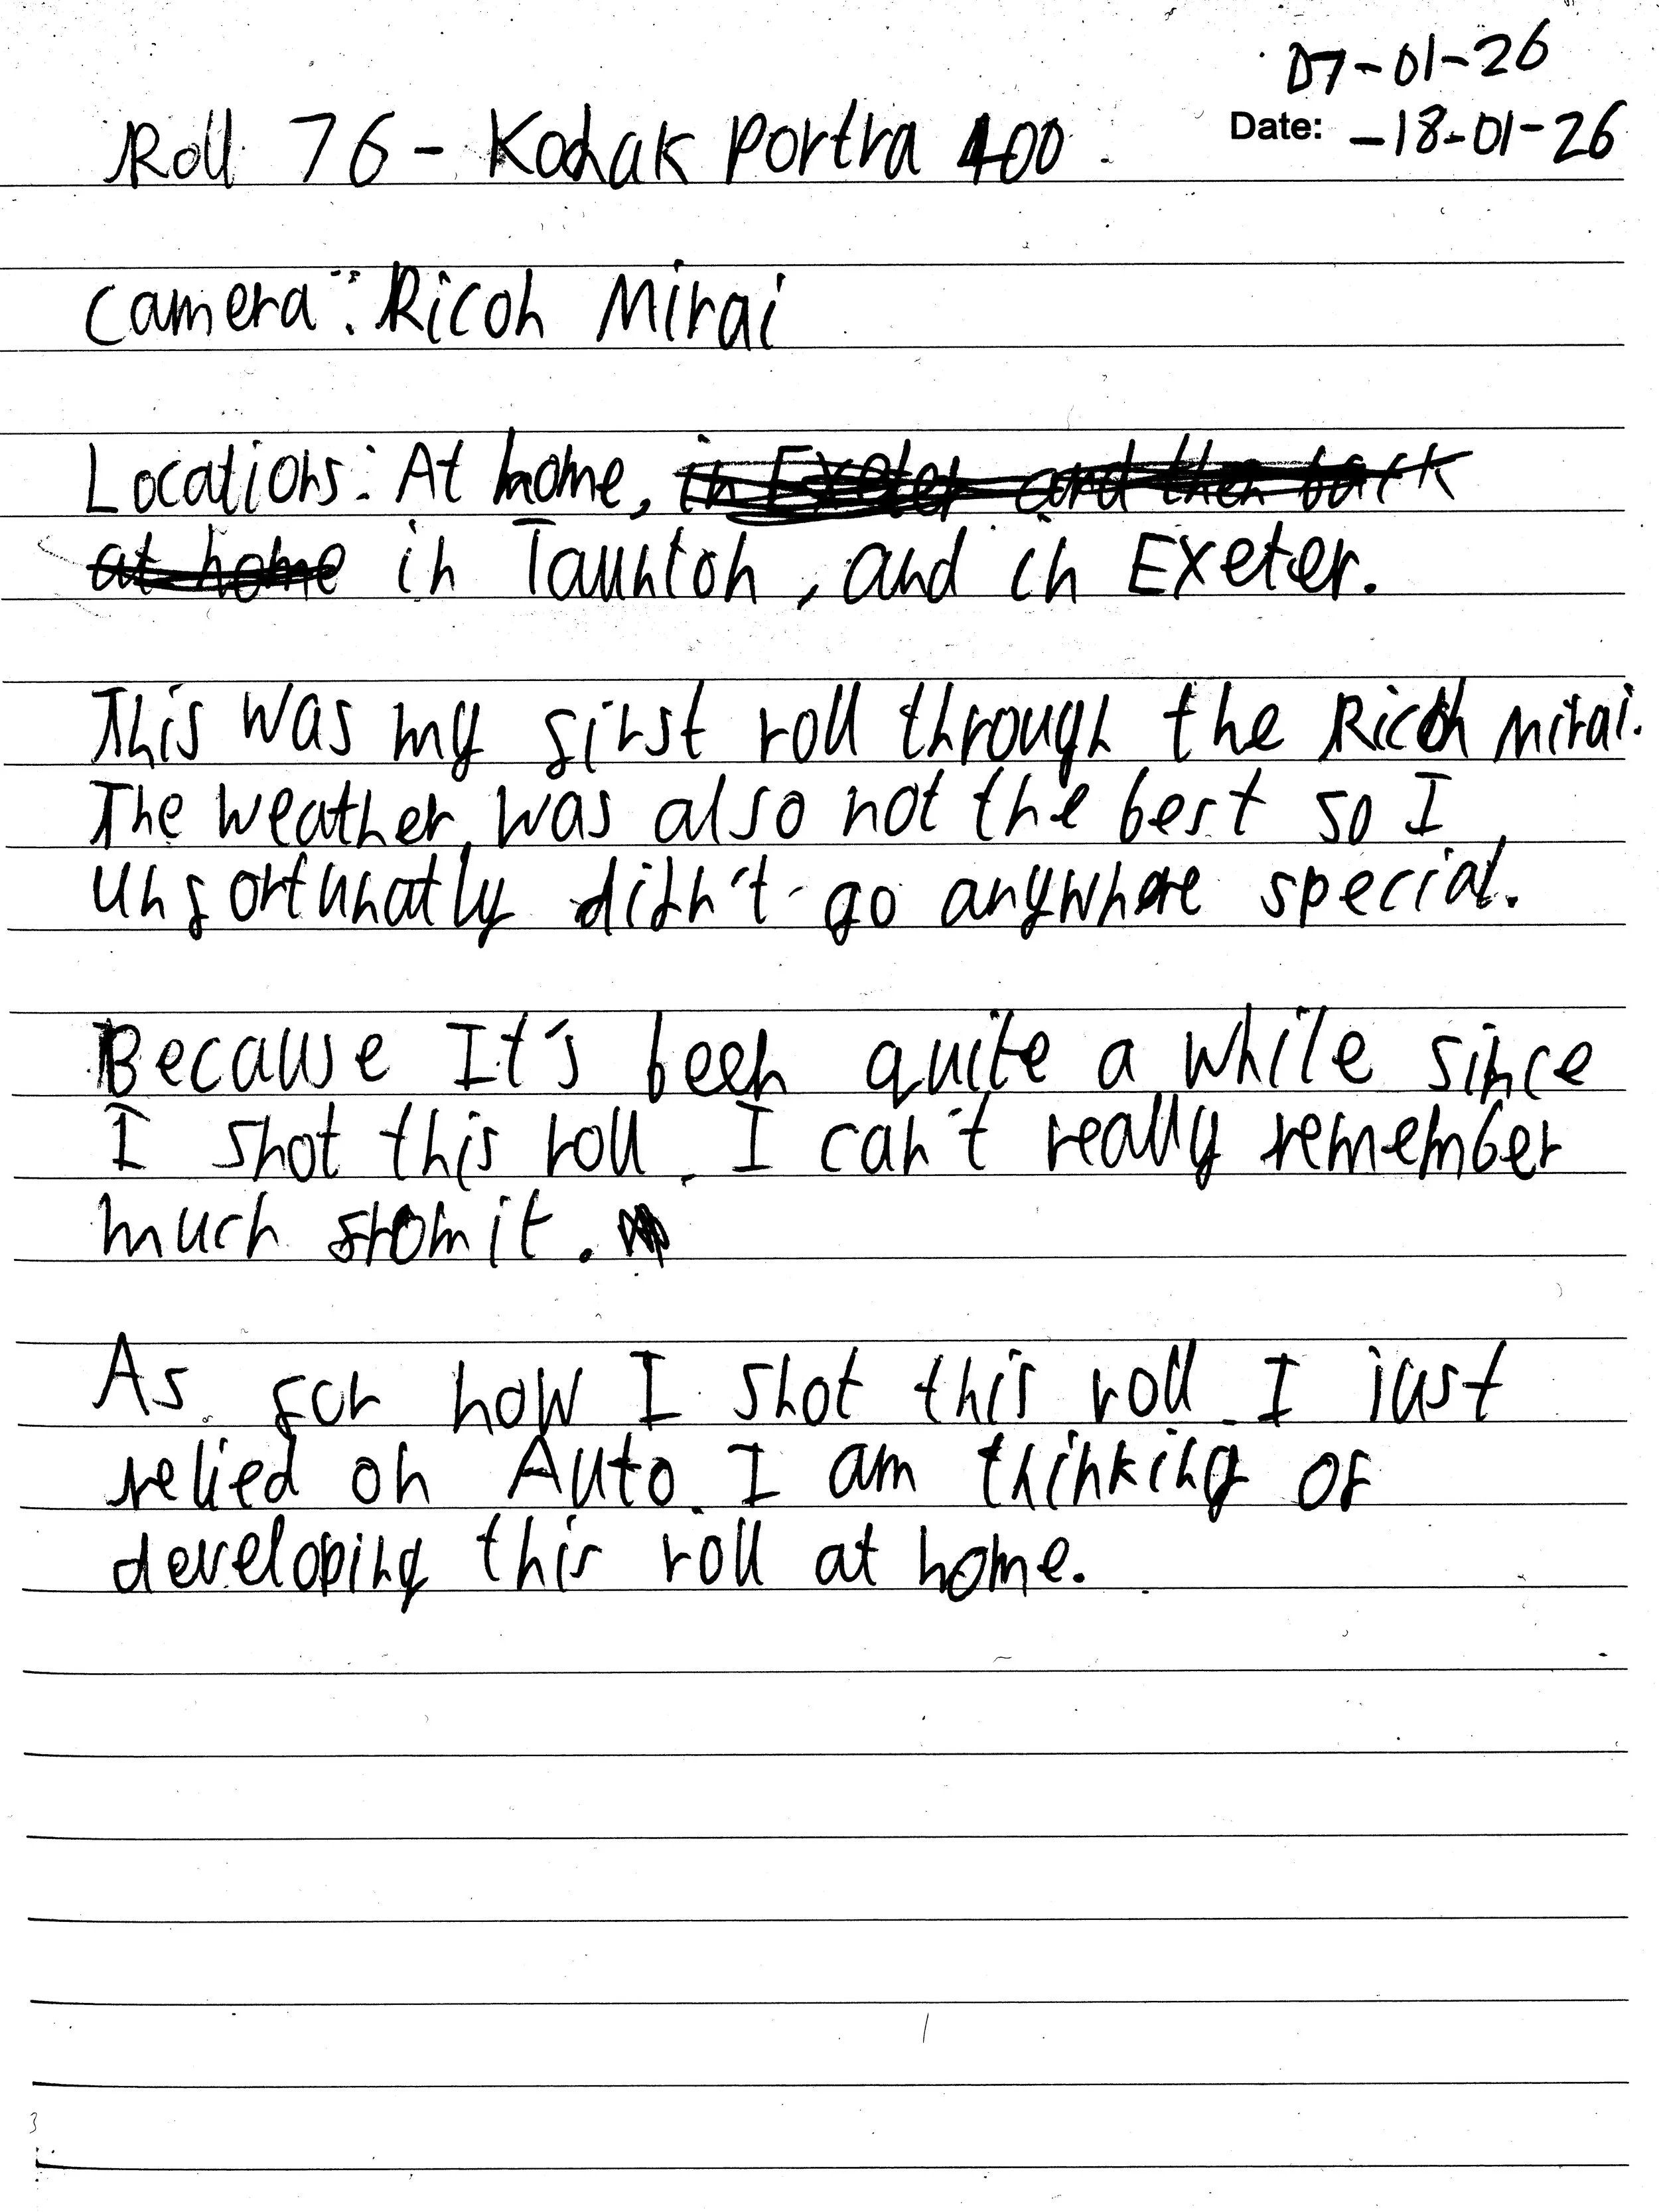 07-01-26
Roll 76 - Kodak Portra 400
Date: -18-01-26
Camera: Ricoh Mirai
Locations: At home, in Exeter and then back
at home in Taunton, and in Exeter.
This was my first roll through the Ricoh Mirai.
The weather was also not the best so I
unfortunatly didn't go anywhere special.
Because It's been quite a while since
I shot this roll, I can't really remember
much from it.
As for how I shot this roll, I just
relied on Auto. I am thinking of
developing this roll at home.